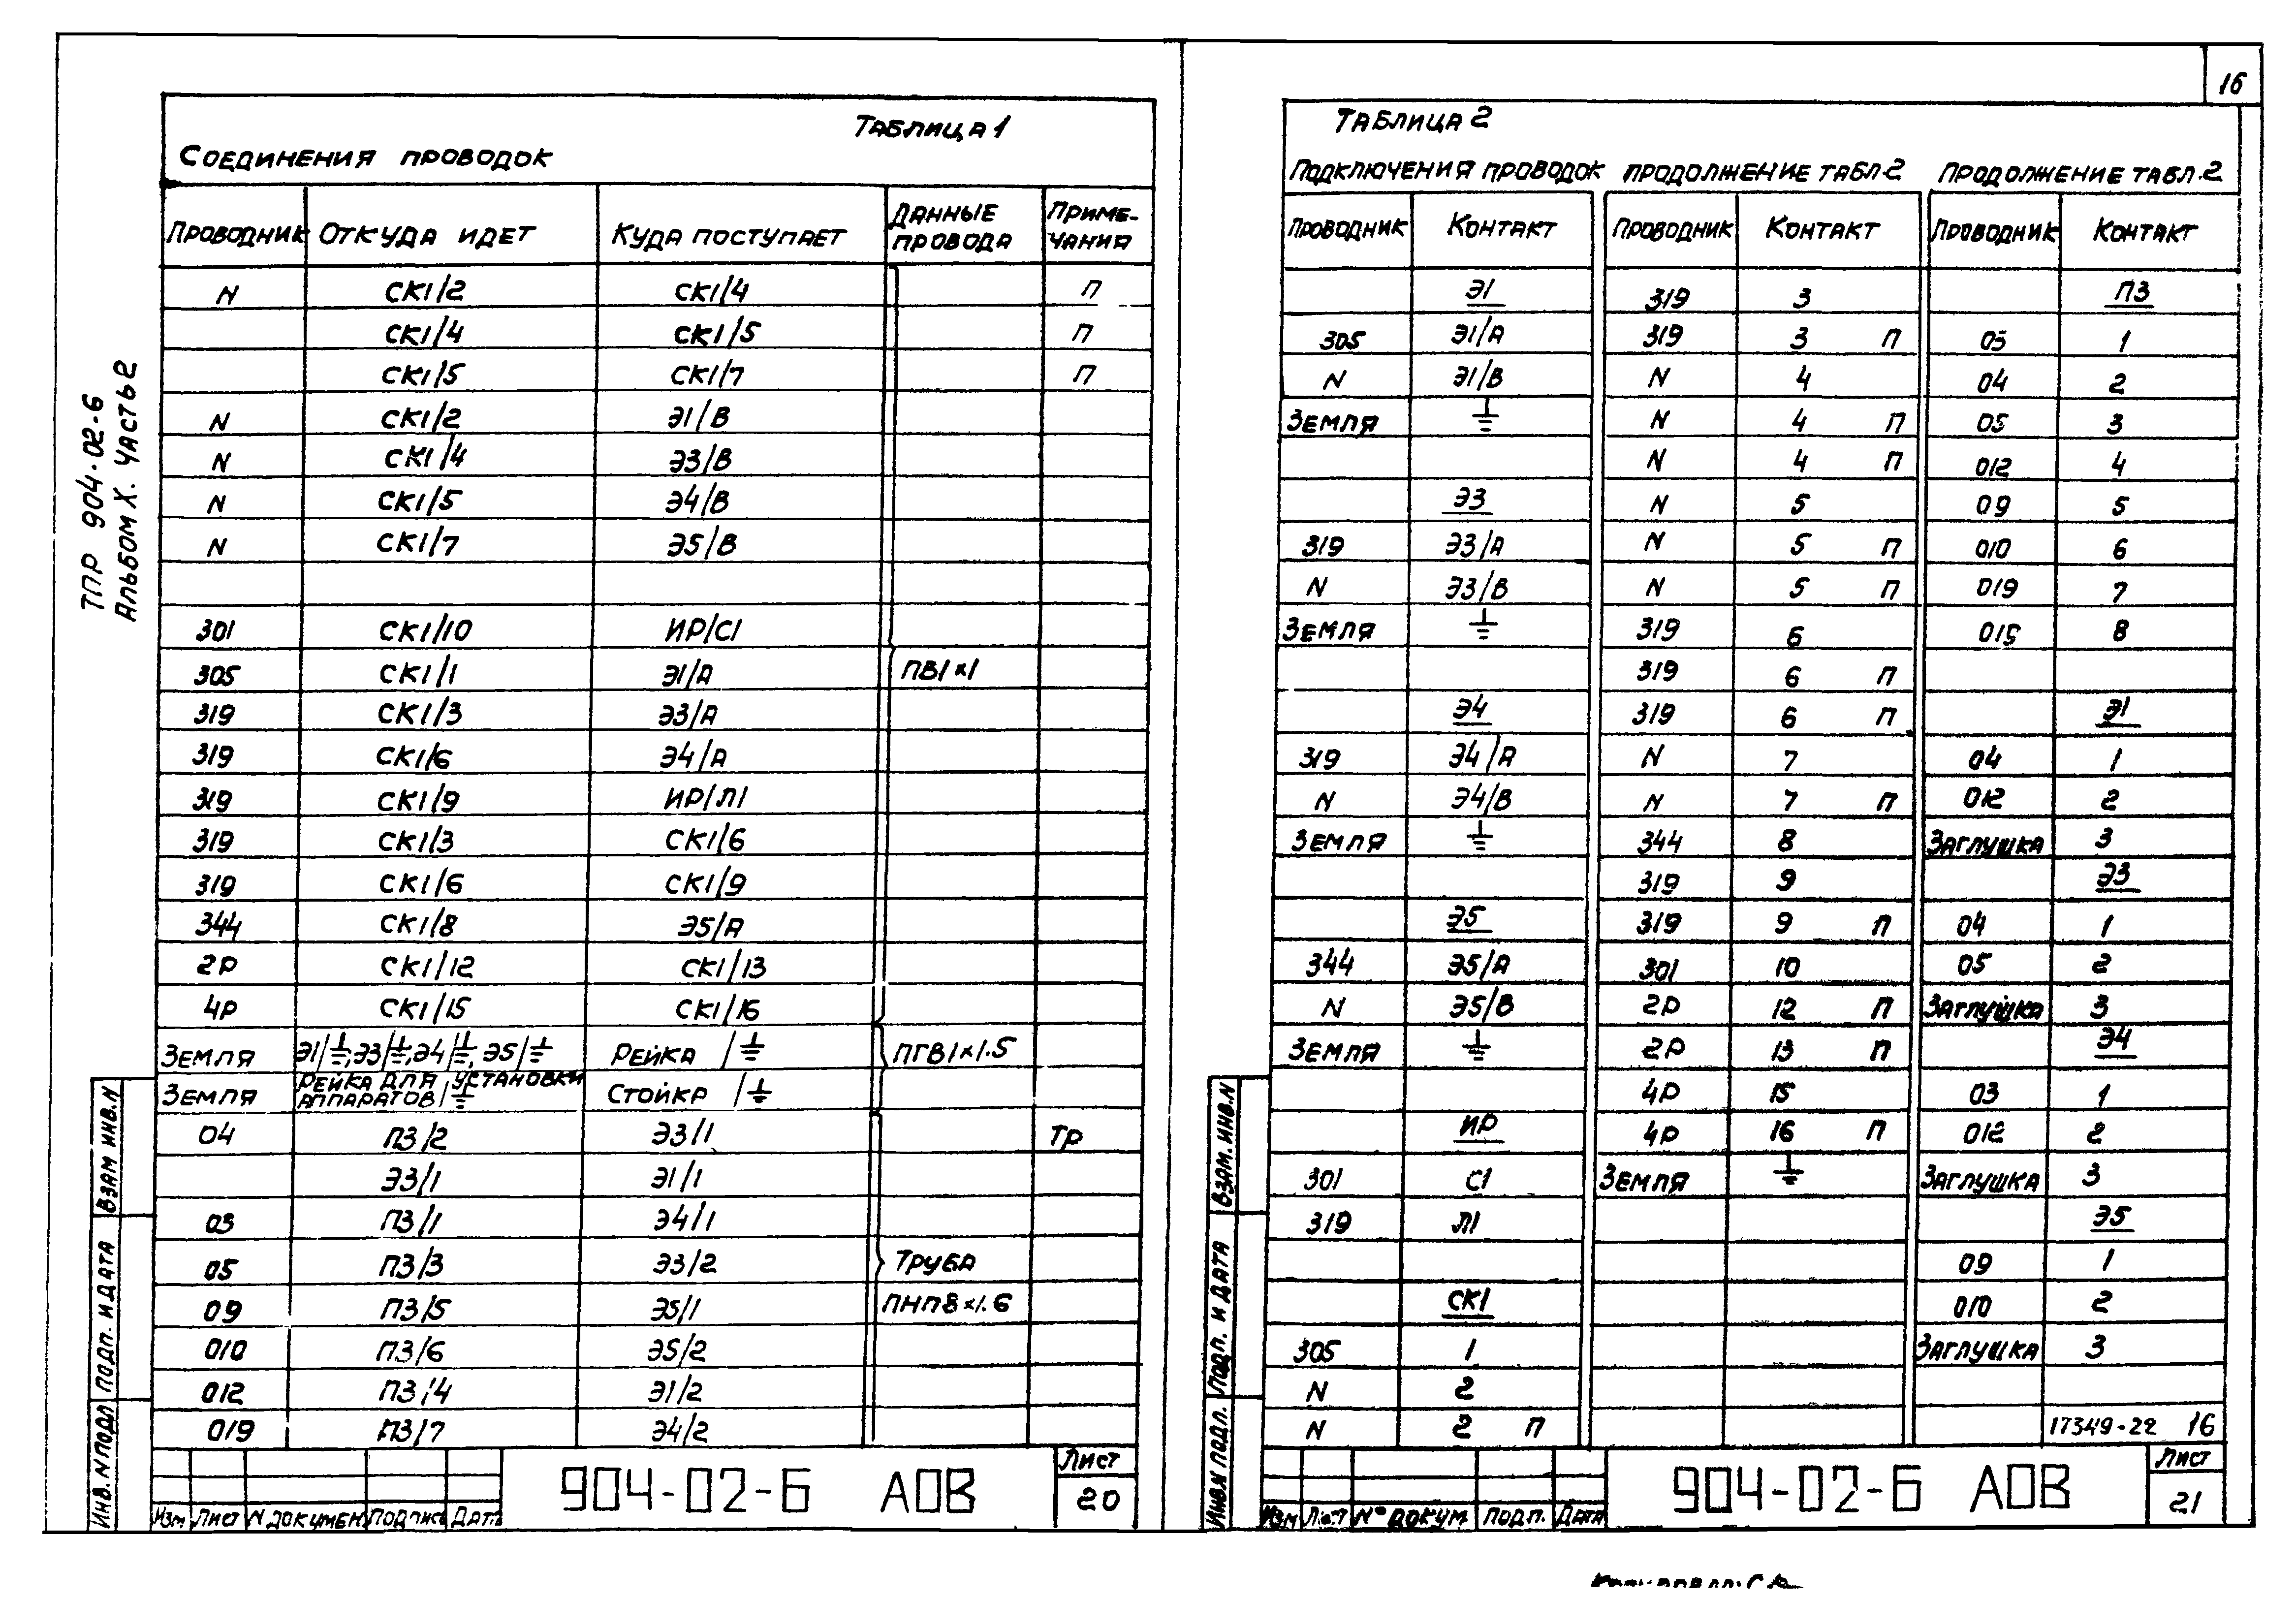 16
ТПР 904-02-6
Альбом X. Часть 2
Таблица 1
Соединения проводок
Проводник Откуда идет Куда поступает Данные провода Приме-чания
N СК1/2 СК1/4 П
СК1/4 СК1/5 П
СК1/5 СК1/7 П
N СК1/2 Э1/В
N СК1/4 Э3/В
N СК1/5 Э4/В
N СК1/7 Э5/В
301 СК1/10 ИР/С1
305 СК1/1 Э1/А ПВ1×1
319 СК1/3 Э3/А
319 СК1/6 Э4/А
319 СК1/9 ИР/Л1
319 СК1/3 СК1/6
319 СК1/6 СК1/9
344 СК1/8 Э5/А
2Р СК1/12 СК1/13
4Р СК1/15 СК1/16
Земля Э1/⏚, Э3/⏚, Э4/⏚, Э5/⏚ Рейка /⏚ ПГВ1×1.5
Земля Рейка для установки аппаратов/⏚ Стойка /⏚
04 П3/2 Э3/1 Тр
Э3/1 Э1/1
03 П3/1 Э4/1
05 П3/3 Э3/2 Труба
09 П3/5 Э5/1 ПНП8×1.6
010 П3/6 Э5/2
012 П3/4 Э1/2
019 П3/7 Э4/2
Взам инв.N
Подп. и дата
Инв.N подл
Изм Лист N докумен Подпись Дата
904-02-6 АОВ
Лист
20
Таблица 2
Подключения проводок Продолжение табл.2 Продолжение табл.2
Проводник Контакт Проводник Контакт Проводник Контакт
Э1 319 3 П3
305 Э1/А 319 3 П 03 1
N Э1/В N 4 04 2
Земля ⏚ N 4 П 05 3
N 4 П 012 4
Э3 N 5 09 5
319 Э3/А N 5 П 010 6
N Э3/В N 5 П 019 7
Земля ⏚ 319 6 015 8
319 6 П
Э4 319 6 П Э1
319 Э4/А N 7 04 1
N Э4/В N 7 П 012 2
Земля ⏚ 344 8 Заглушка 3
319 9 Э3
Э5 319 9 П 04 1
344 Э5/А 301 10 05 2
N Э5/В 2Р 12 П Заглушка 3
Земля ⏚ 2Р 13 П Э4
4Р 15 03 1
ИР 4Р 16 П 012 2
301 С1 Земля ⏚ Заглушка 3
319 Л1 Э5
09 1
СК1 010 2
305 1 Заглушка 3
N 2
N 2 П 17349-22 16
Взам. инв.N
Подп. и дата
Инв.N подл.
Изм Лист N° докум Подп. Дата
904-02-6 АОВ
Лист
21